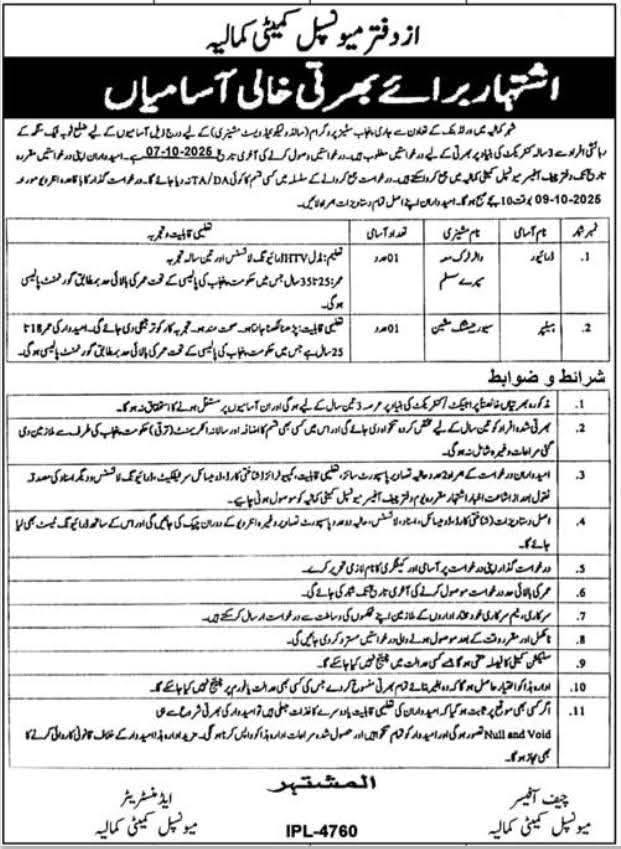 از دفتر میونسپل کمیٹی کمالیہ
اشتہار برائے بھرتی خالی آسامیاں
شہر کمالیہ میں ورلڈ بنک کے تعاون سے جاری پنجاب سٹیز پروگرام (سالڈ و لیکوئیڈ ویسٹ مشینری) کے لیے درج ذیل آسامیوں کے لیے ضلع ٹوبہ ٹیک سنگھ کے
رہائشی افراد سے 3 سالہ کنٹریکٹ کی بنیاد پر بھرتی کے لیے درخواستیں مطلوب ہیں۔ درخواستیں وصول کرنے کی آخری تاریخ 07-10-2025 ہے۔ امیدواران اپنی درخواستیں مقررہ
تاریخ تک دفتر چیف آفیسر میونسپل کمیٹی کمالیہ میں جمع کرواسکتے ہیں۔ درخواست جمع کروانے کے سلسلہ میں کسی قسم کا کوئی TA/DA نہ دیا جائے گا۔ درخواست گذار کا باقاعدہ انٹرویو مورخہ
09-10-2025 بوقت 10 بجے صبح ہوگا۔ امیدواران اپنے اصل تمام دستاویزات ہمراہ لائیں۔
نمبر شمار نام آسامی نام مشینری تعداد آسامی تعلیمی قابلیت و تجربہ
1. ڈرائیور واٹر ٹرک معہ سپرے سسٹم 01 عدد تعلیم: مڈل HTV ڈرائیونگ لائسنس اور تین سالہ تجربہ
عمر: 25 تا 35 سال جس میں حکومت پنجاب کی پالیسی کے تحت عمر کی بالائی حد بمطابق گورنمنٹ پالیسی
ہوگی۔
2. ہیلپر سیور جیٹنگ مشین 01 عدد تعلیمی قابلیت: پڑھنا لکھنا جانتا ہو۔ صحت مند ہو۔ تجربہ کار کو ترجیح دی جائے گی۔ امیدوار کی عمر 18 تا
25 سال ہے جس میں حکومت پنجاب کی پالیسی کے تحت عمر کی بالائی حد بمطابق گورنمنٹ پالیسی ہوگی۔
شرائط و ضوابط
1. مذکورہ بھرتیاں خالصتاً پراجیکٹ/کنٹریکٹ کی بنیاد پر عرصہ 3 تین سال کے لیے ہوگی اور ان آسامیوں پر مستقل ہونے کا استحقاق نہ ہوگا۔
2. بھرتی شدہ افراد کو تین سال کے لیے مختص کردہ تنخواہ دی جائے گی اور اس میں کسی بھی قسم کا اضافہ اور سالانہ انکریمنٹ (ترقی) حکومت پنجاب کی طرف سے ملازمین دی
گئی مراعات وغیرہ شامل نہ ہوگی۔
3. امیدواران درخواست کے ہمراہ 2 عدد حالیہ تصاویر پاسپورٹ سائز، تعلیمی قابلیت، کمپیوٹرائزڈ شناختی کارڈ، ڈومیسائل سرٹیفکیٹ، ڈرائیونگ لائسنس، و دیگر اسناد کی مصدقہ
نقول بعد از اشاعت اخبار اشتہار مقررہ یوم دفتر چیف آفیسر میونسپل کمیٹی کمالیہ کو موصول ہونی چاہیے۔
4. اصل دستاویزات (شناختی کارڈ، ڈومیسائل، اسناد، لائسنس، حالیہ دو عدد پاسپورٹ تصاویر وغیرہ انٹرویو کے دوران چیک کی جائیں گی اور اس کے ساتھ ڈرائیونگ ٹیسٹ بھی لیا
جائے گا۔
5. درخواست گذار اپنی درخواست پر آسامی اور کیٹگری کا نام لازمی تحریر کرے۔
6. عمر کی بالائی حد درخواست موصول کرنے کی آخری تاریخ تک شمار کی جائے گی۔
7. سرکاری، نیم سرکاری خود مختار اداروں کے ملازمین اپنے محکموں کی وساطت سے درخواست ارسال کرسکتے ہیں۔
8. نامکمل اور مقررہ وقت کے بعد موصول ہونے والی درخواستیں مسترد کر دی جائیں گی۔
9. سلیکشن کمیٹی کا فیصلہ حتمی ہوگا جسے کسی عدالت میں چیلنج نہیں کیا جاسکے گا۔
10. ادارہ ہذا کو اختیار حاصل ہوگا کہ وہ بغیر بتائے تمام بھرتی منسوخ کردے جس کی کسی بھی عدالت یا فورم پر چیلنج نہیں کیا جاسکے گا۔
11. اگر کسی بھی موقع پر ثابت ہوگیا کہ امیدواران کی تعلیمی قابلیت یا دوسرے کاغذات جعلی ہیں تو امیدوار کی بھرتی شروع سے ہی
Null and Void تصور ہوگی اور امیدوار کو تمام تنخواہیں اور حصول شدہ مراعات ادارہ ہذا کو واپس کرنا ہوگی۔ مزید ادارہ ہذا امیدوار کے خلاف قانونی کاروائی کرنے کا
بھی مجاز ہوگا۔
المشتہر
چیف آفیسر ایڈمنسٹریٹر
میونسپل کمیٹی کمالیہ میونسپل کمیٹی کمالیہ
IPL-4760